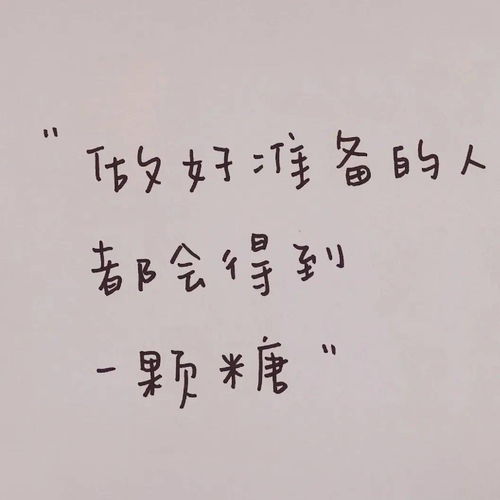 "做好准备的人
都会得到
一颗糖"